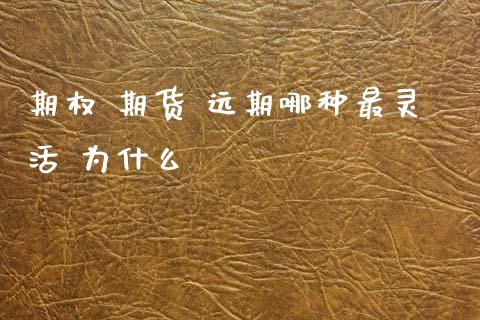 期权 期货 远期哪种最灵
活 为什么